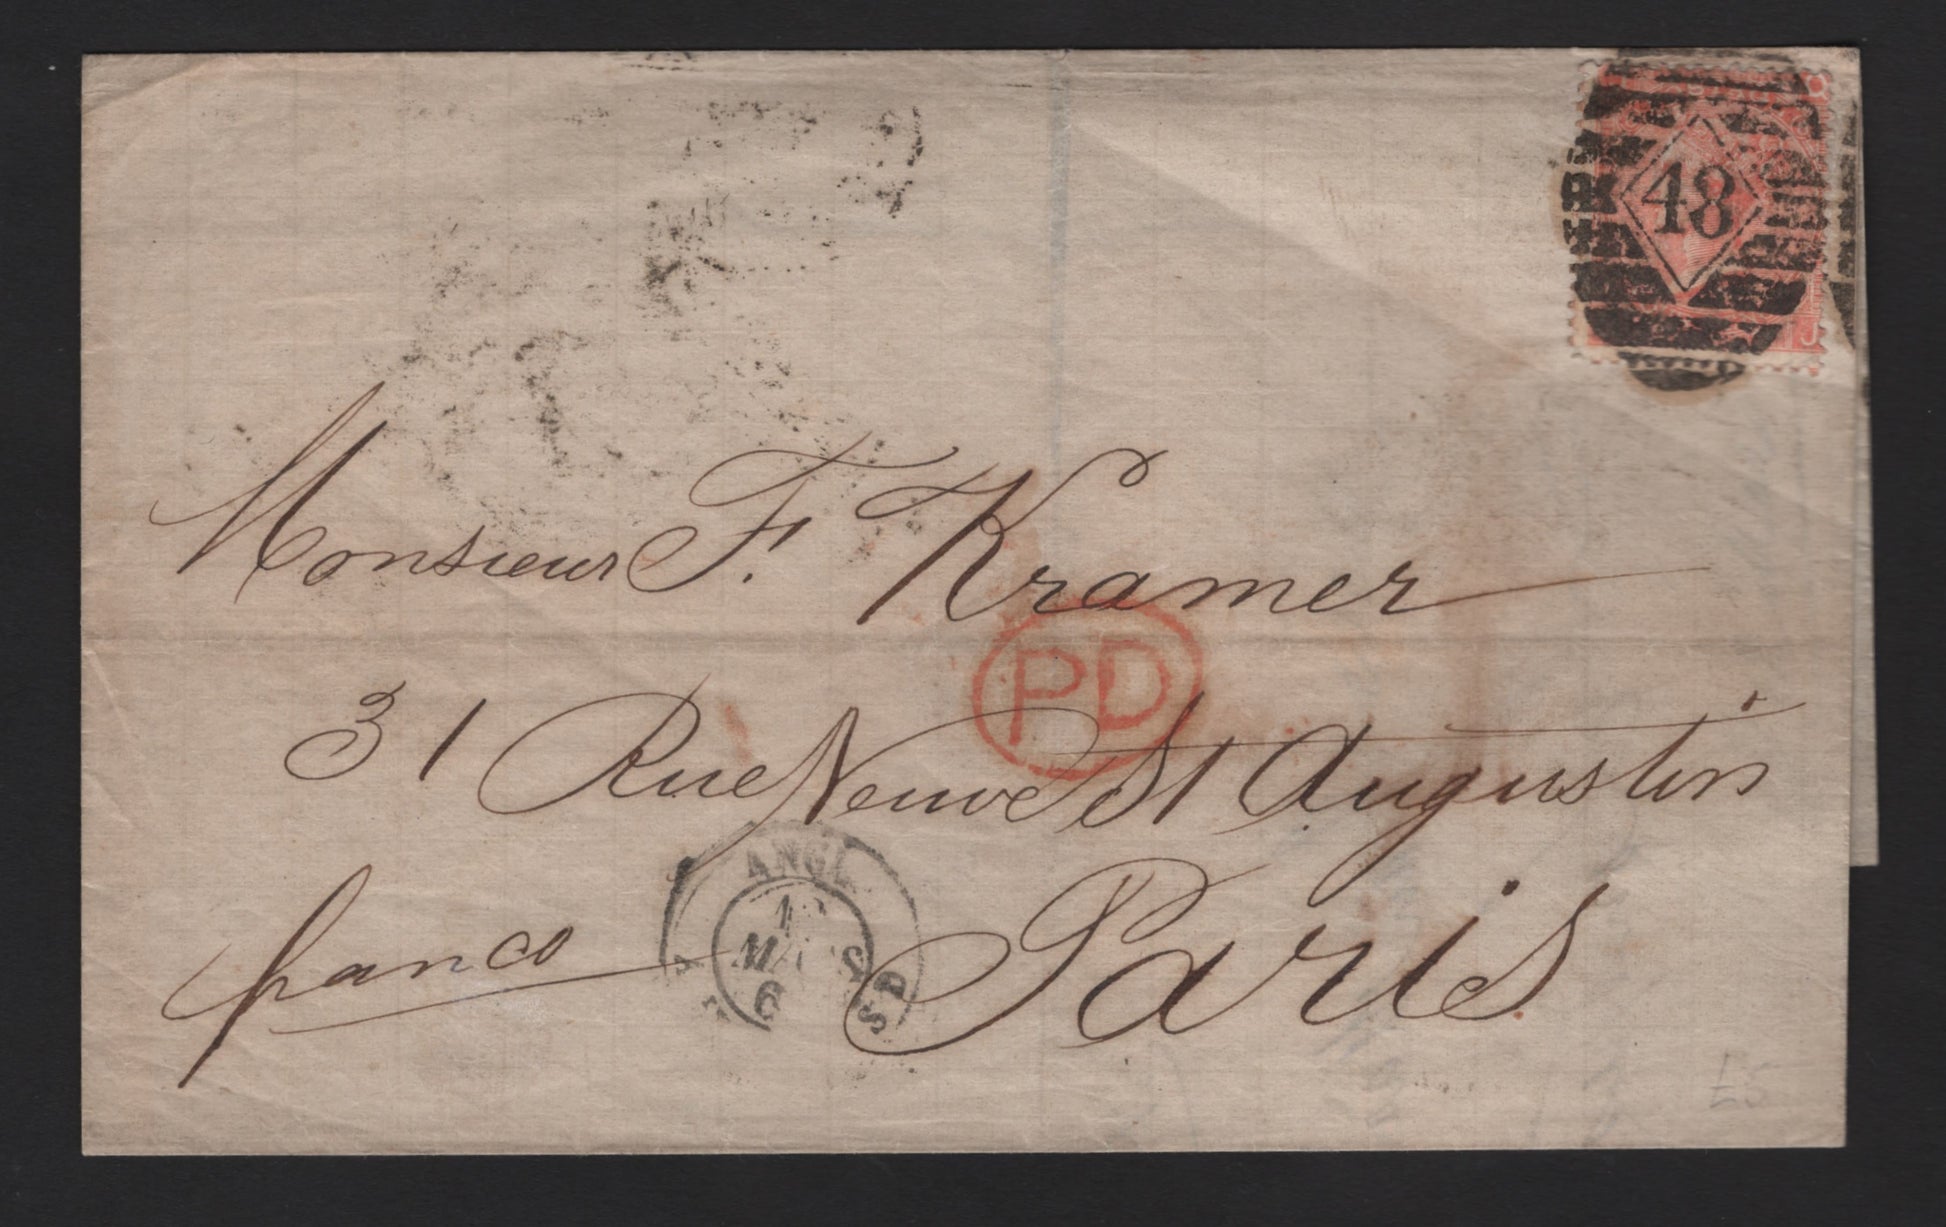 48
Monsieur F. Kramer
PD
31 Rue Neuve St Augustin
ANGL
franco
Paris
£5